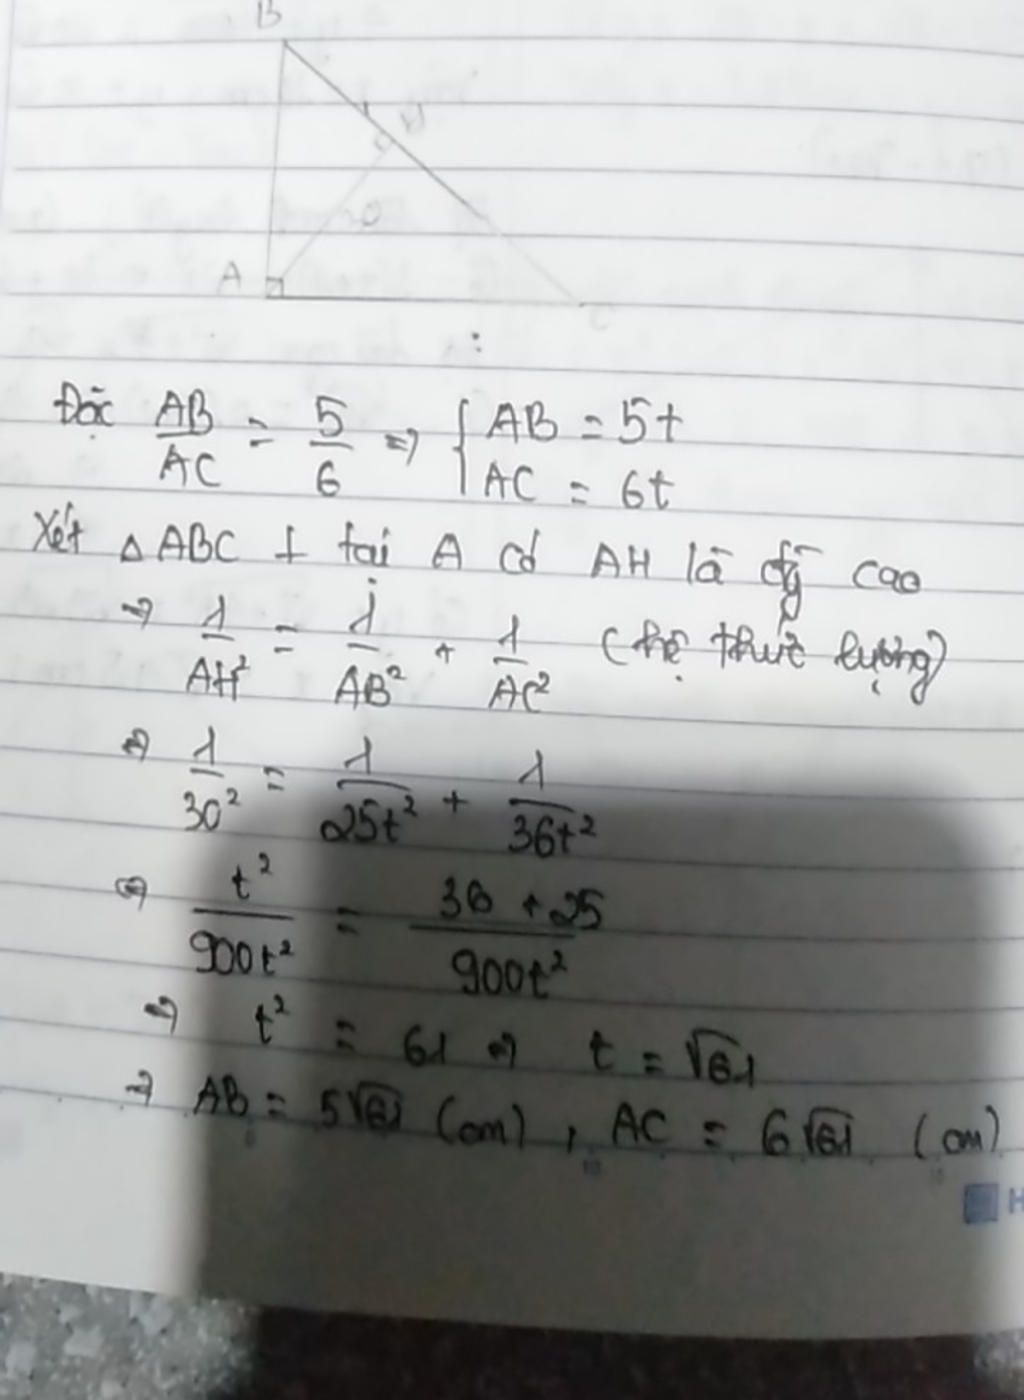 B
H
30
A
C
Đặt AB/AC = 5/6 => { AB = 5t
AC = 6t
Xét △ABC ⊥ tại A có AH là đg cao
=> 1/AH² = 1/AB² + 1/AC² (hệ thức lượng)
=> 1/30² = 1/25t² + 1/36t²
<=> t²/900t² = 36 + 25/900t²
=> t² = 61 => t = √61
=> AB = 5√61 (cm), AC = 6√61 (cm)
H